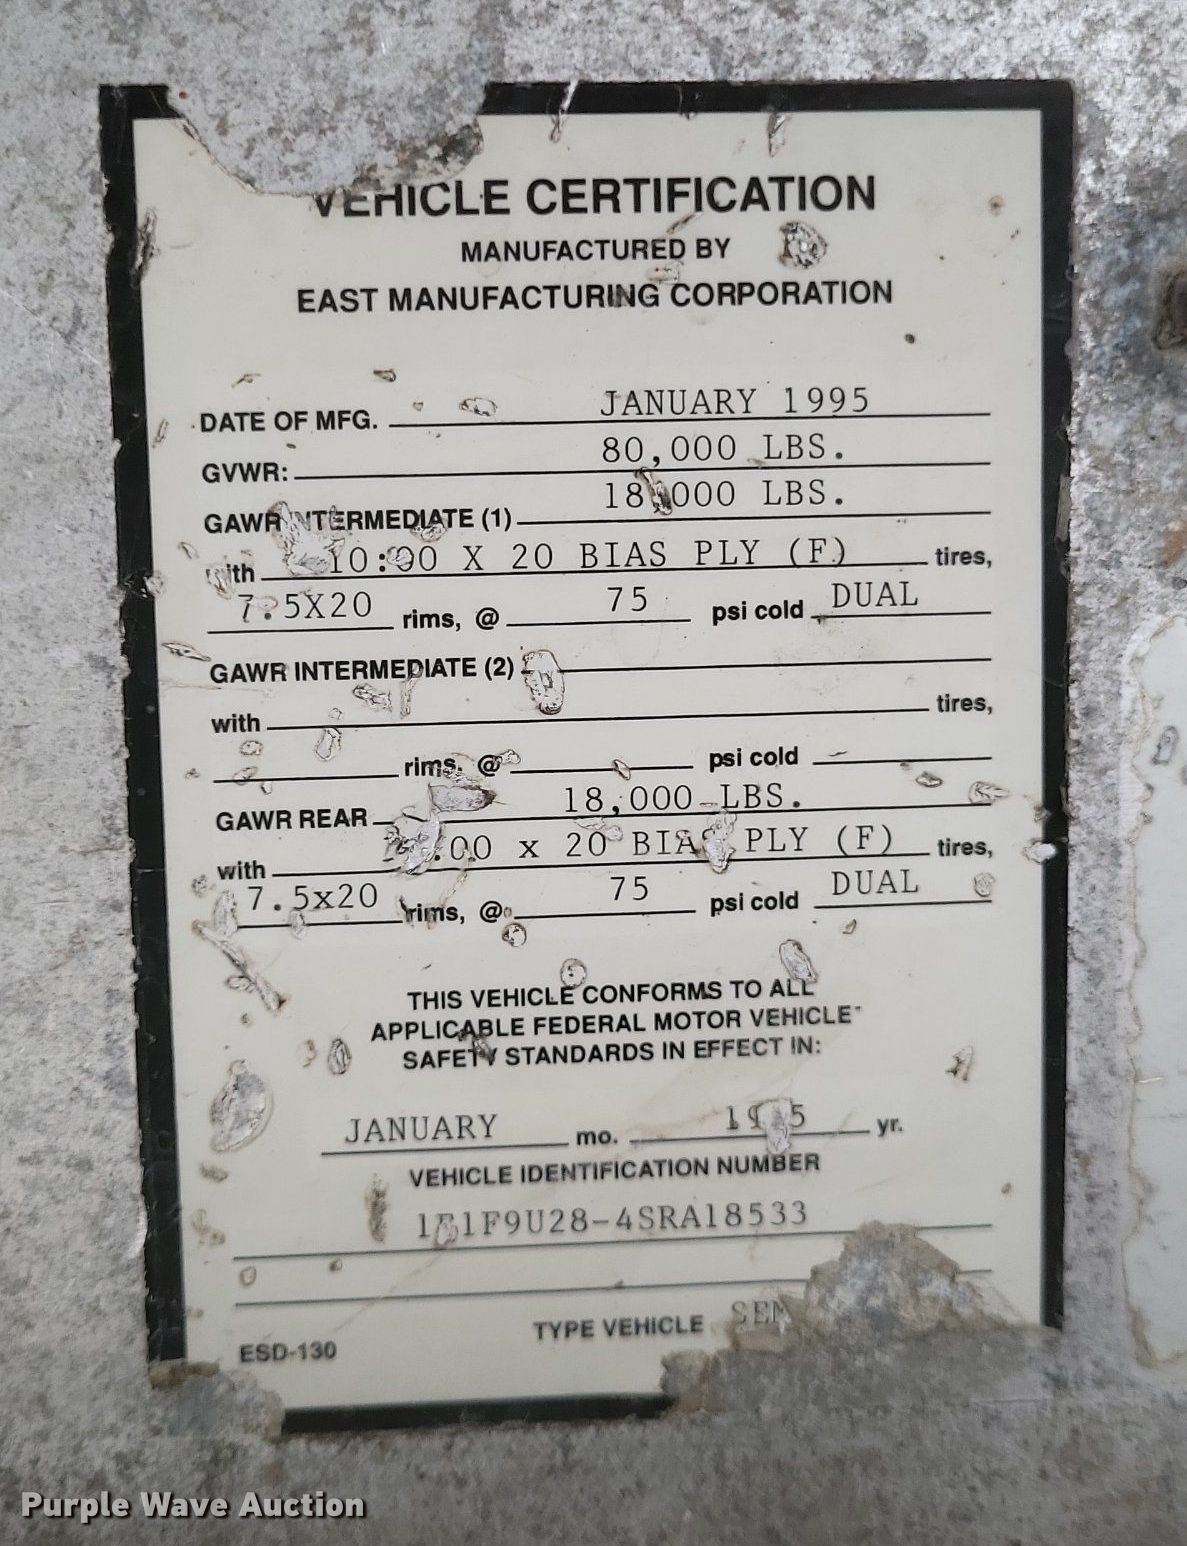 VEHICLE CERTIFICATION
MANUFACTURED BY
EAST MANUFACTURING CORPORATION
DATE OF MFG. JANUARY 1995
GVWR: 80,000 LBS.
GAWR INTERMEDIATE (1) 18,000 LBS.
with 10:00 X 20 BIAS PLY (F) tires,
7.5X20 rims, @ 75 psi cold DUAL
GAWR INTERMEDIATE (2)
with tires,
rims, @ psi cold
GAWR REAR 18,000 LBS.
with x 20 BIAS PLY (F) tires,
7.5x20 rims, @ 75 psi cold DUAL
THIS VEHICLE CONFORMS TO ALL
APPLICABLE FEDERAL MOTOR VEHICLE
SAFETY STANDARDS IN EFFECT IN:
JANUARY mo. 1995 yr.
VEHICLE IDENTIFICATION NUMBER
1E1F9U28-4SRA18533
TYPE VEHICLE
ESD-130
Purple Wave Auction